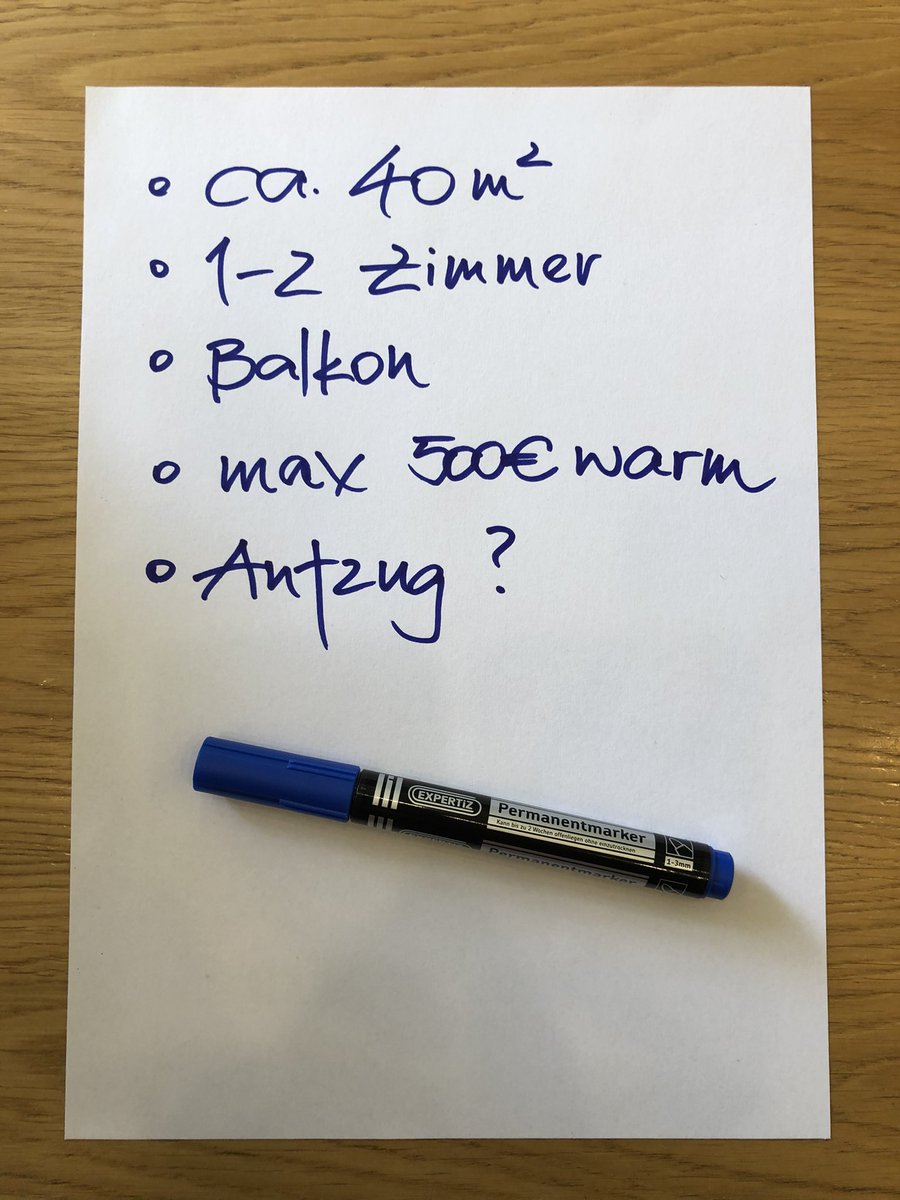 ca. 40 m²
1-2 Zimmer
Balkon
max 500€ warm
Aufzug ?
EXPERTIZ
Permanentmarker
Kann bis zu 2 Wochen offenliegen ohne einzutrocknen
1-3mm
Permanentmarker